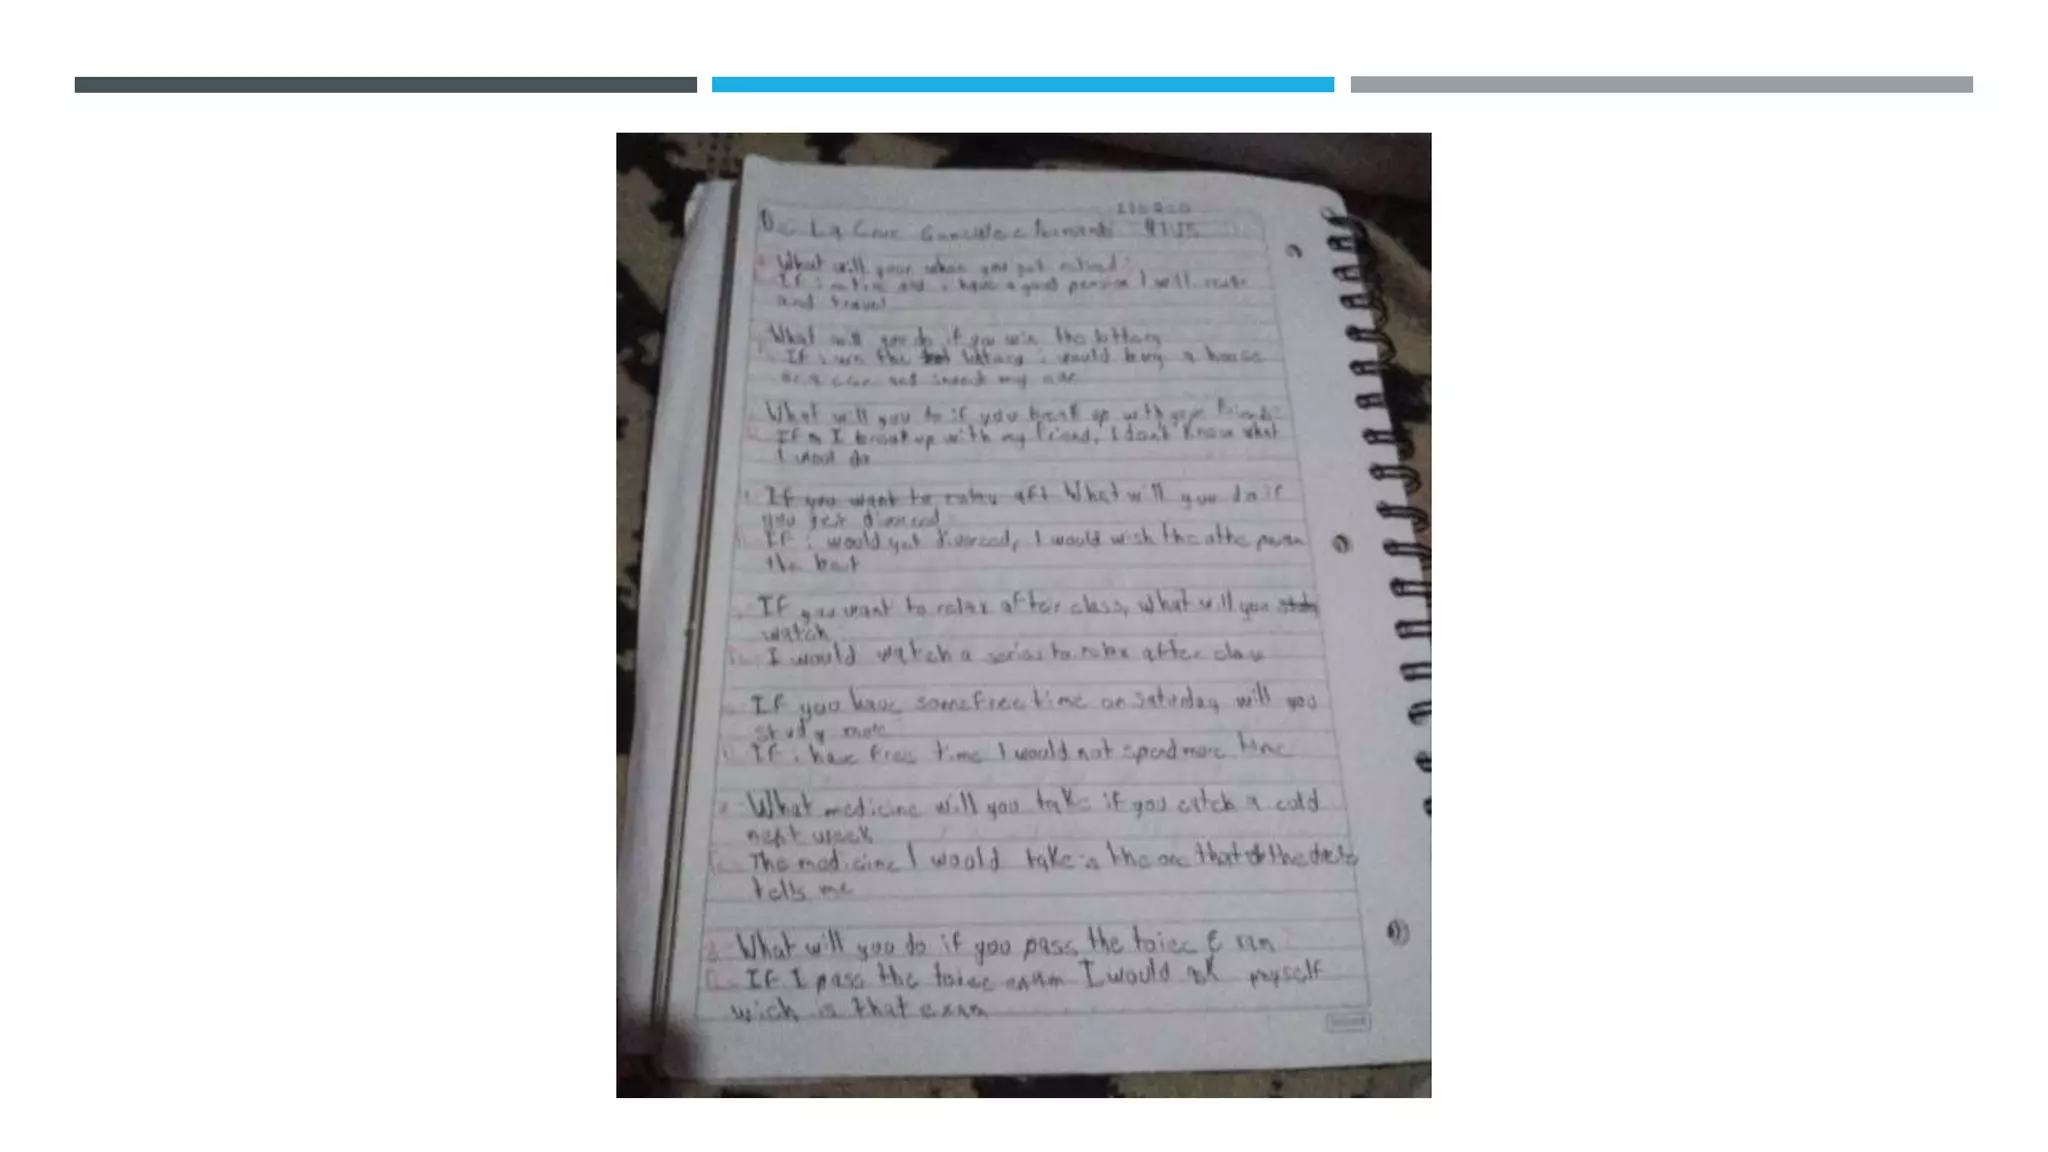 De La Cruz
What will your when you get retired
If i retire and i have a good pension I will
and travel
What will you do if you win the lottery
If i win the lottery i would buy a house
or a car and my
What will you do if you break up with your friends
If I break up with my friend, I don't know what
I do
If you want to What will you do if
you get divorced
If i would get divorced, I would wish the othe person
the best
If you want to relax after class, what will you study
watch
I would watch a series to relax after class
If you have some free time on Saturday will you
study more
If i have free time I would not spend more time
What medicine will you take if you catch a cold
next week
The medicine I would take is the one that the
tells me
8. What will you do if you pass the toiec Exam
If I pass the toiec exam I would ask myself
wich is that exam